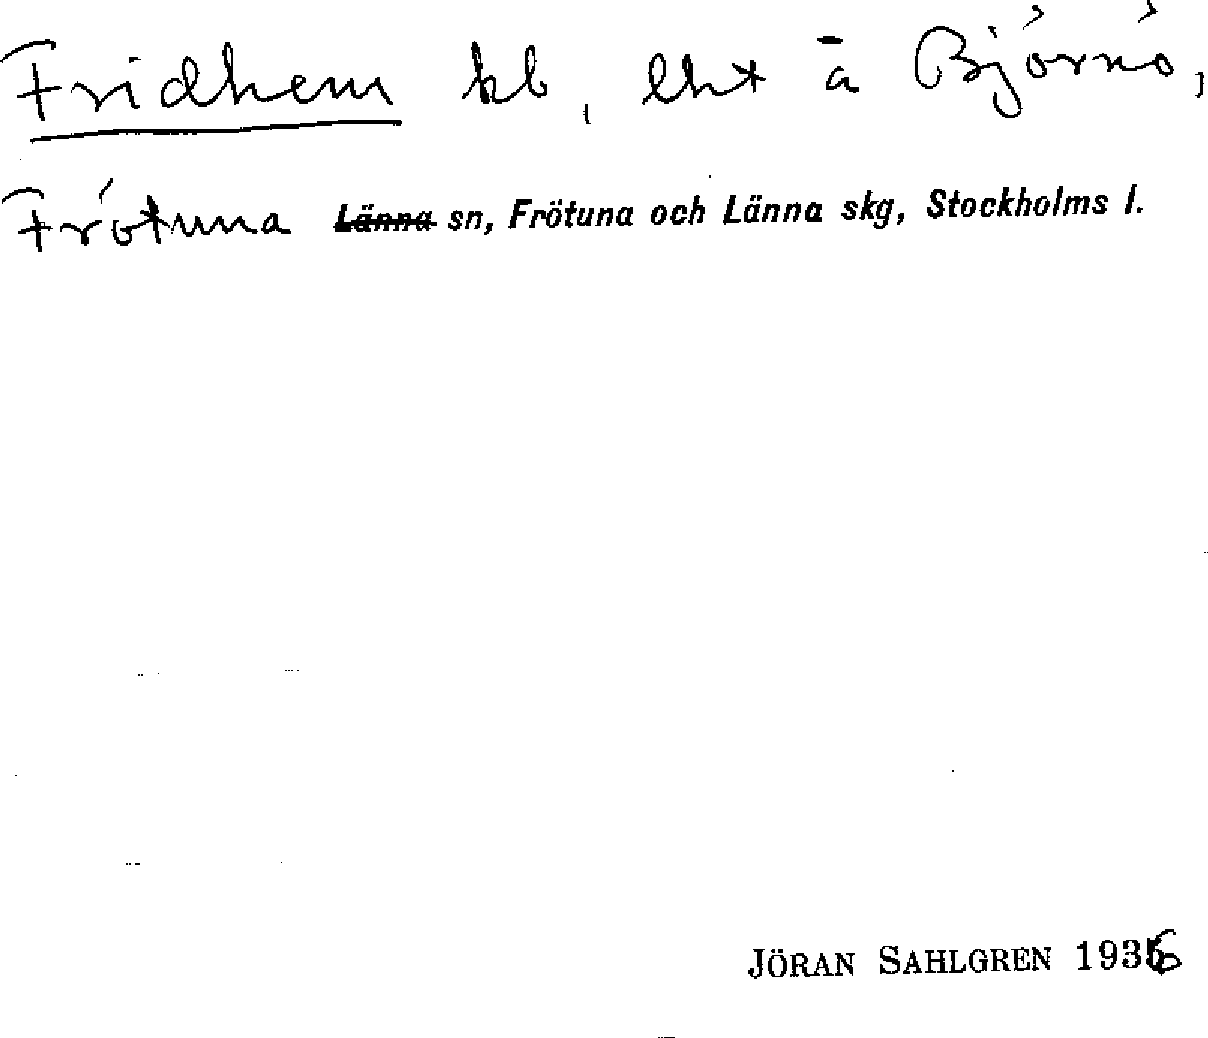 Fridhem kb, lht å Björnö,
Frötuna Länna sn, Frötuna och Länna skg, Stockholms l.
JÖRAN SAHLGREN 1936